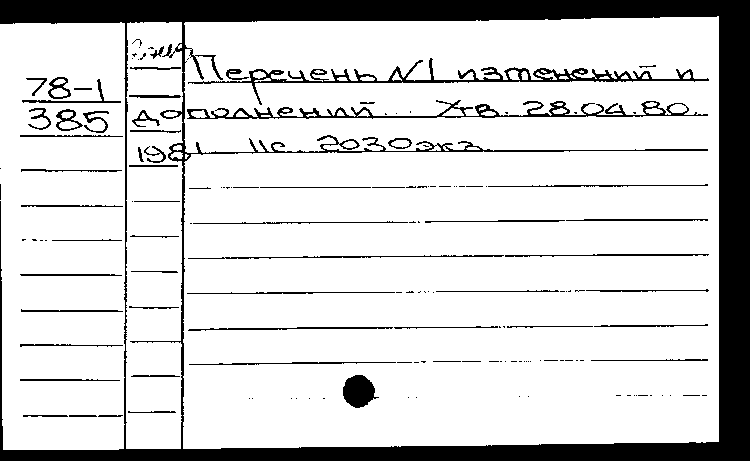 Перечень №1 изменений и
78-1
385 дополнений. Утв. 28.04.80.
1981 11с. 2030экз.